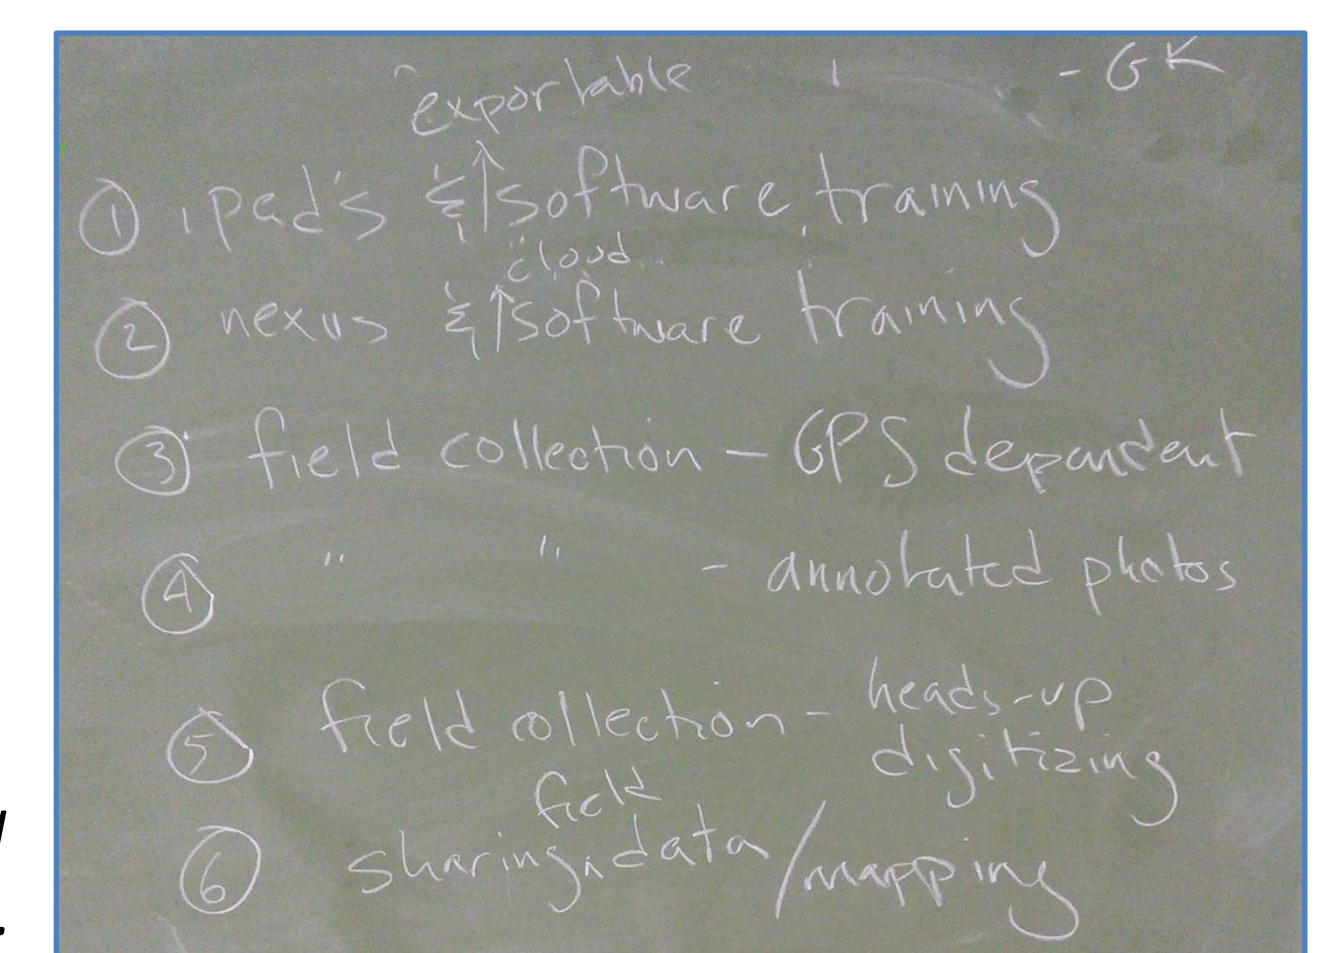 exportable - GK
① ipad's & ↑ software training
cloud
② nexus & ↑ software training
③ field collection – GPS dependent
④ " " - annotated photos
⑤ field collection - heads-up
digitizing
field
⑥ sharing ‸ data / mapping